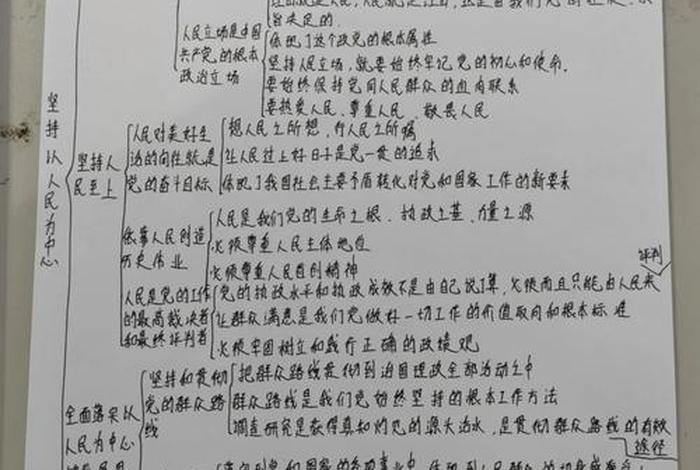 旨决定的.
人民立场是中国
共产党的根本
政治立场
体现了这个政党的根本属性
坚持人民立场,就要始终牢记党的初心和使命.
要始终保持党同人民群众的血肉联系
要热爱人民、尊重人民、敬畏人民
坚持以人民为中心
坚持人
民至上
人民对美好生
活的向往就是
党的奋斗目标
想人民之所想,行人民之所嘱
让人民过上好日子是党一贯的追求
体现了我国社会主要矛盾转化对党和国家工作的新要求
依靠人民创造
历史伟业
人民是我们党的生命之根、执政之基、力量之源
必须尊重人民主体地位
必须尊重人民首创精神
人民是党的工作
的最高裁决者
和最终评判者
党的执政水平和执政成效不是由自己说了算,必须而且只能由人民来
评判
让群众满意是我们党做好一切工作的价值取向和根本标准
必须牢固树立和践行正确的政绩观
全面落实以
人民为中心
坚持和贯彻
党的群众路
线
把群众路线贯彻到治国理政全部活动之中
群众路线是我们党始终坚持的根本工作方法
调查研究是获得真知灼见的源头活水,是贯彻群众路线的有效
途径